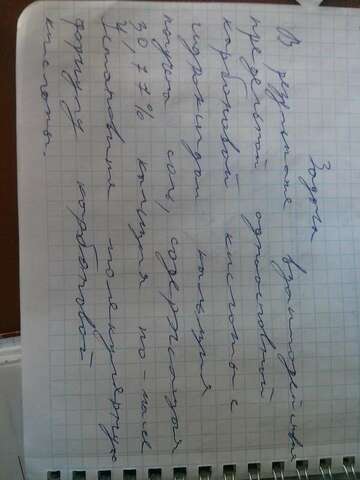 Задача
В результате взаимодействия
предельной одноосновной
карбоновой кислоты с
гидроксидом кальция
получили соль, содержащая
30,77% кальция по-массе
Установите молекулярную
формулу карбоновой
кислоты.